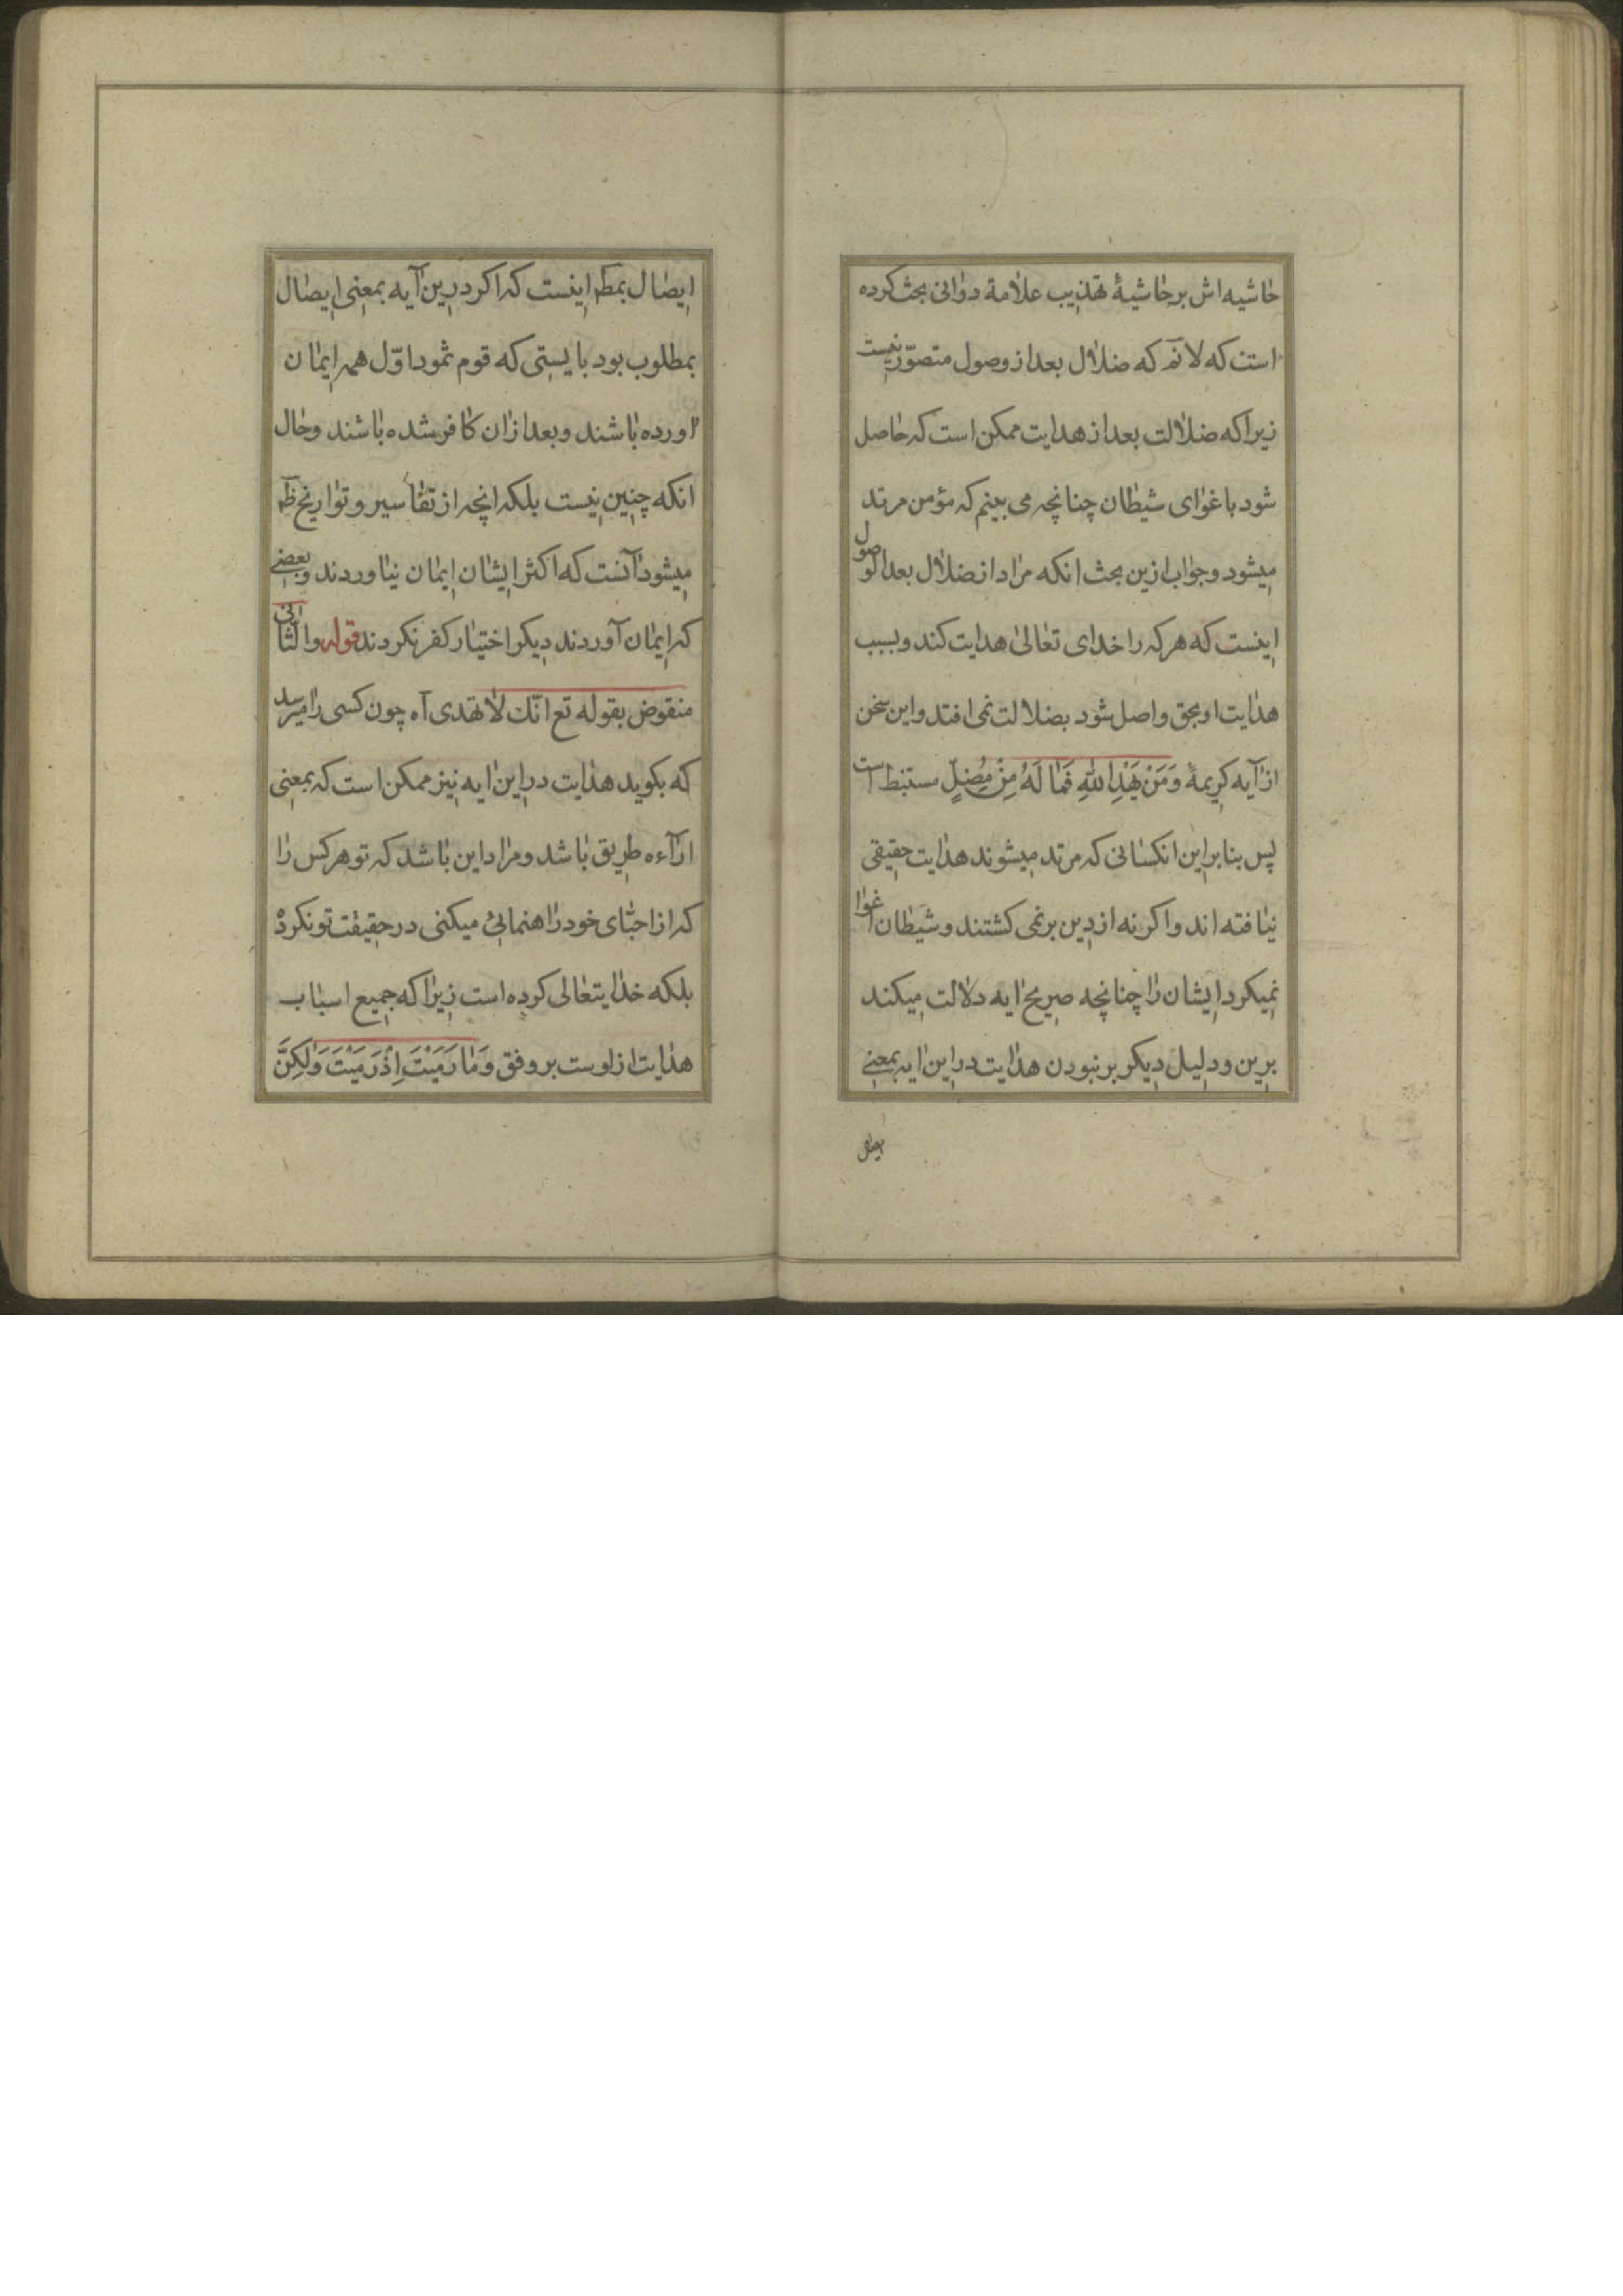 حاشیه اش بر حاشیهٔ تهذیب علامة دوانی بحث کرده
است که لا نم که ضلال بعد از وصول متصوّر نیست
زیرا که ضلالت بعد از هدایت ممکن است که حاصل
شود باغوای شیطان چنانچه می بینم که مؤمن مرتد
میشود و جواب ازین بحث انکه مراد از ضلال بعد الوصول
اینست که هر که را خدای تعالیٰ هدایت کند و بسبب
هدایت او بحق واصل شود بضلالت نمی افتد و این سخن
از آیه کریمهٔ وَمَنْ یَهْدِ اللهِ فَمَا لَهُ مِنْ مُضِلٍّ مستنبط است
پس بنا براین انکسانی که مرتد میشوند هدایت حقیقی
نیافته اند و اکر نه از دین بر نمی کشتند و شیطان اغوا
نمیکرد ایشان را چنانچه صریح ایه دلالت میکند
برین و دلیل دیکر بر نبودن هدایت در این ایه بمعنی
ایصال
ایصال بمط اینست که اکر درین آیه بمعنی ایصال
بمطلوب بود بایستی که قوم ثمود اوّل همه ایمان
اورده باشند و بعد ازان کافر شده باشند و حال
انکه چنین نیست بلکه انچه از تفاسیر و تواریخ ظ
میشود آنست که اکثر ایشان ایمان نیاوردند و بعضی
که ایمان آوردند دیکر اختیار کفر نکردند قوله و الثانی
منقوض بقوله تع انّك لا تهدی آه چون کسی را میرسد
که بکوید هدایت در این ایه نیز ممکن است که بمعنی
ارآءه طریق باشد و مراد این باشد که تو هر کس را
که از احبّای خود راهنمائی میکنی در حقیقت تو نکرد
بلکه خدایتعالی کرده است زیرا که جمیع اسباب
هدایت از اوست بر وفق وَمَا رَمَیْتَ اِذْ رَمَیْتَ وَلٰکِنَّ